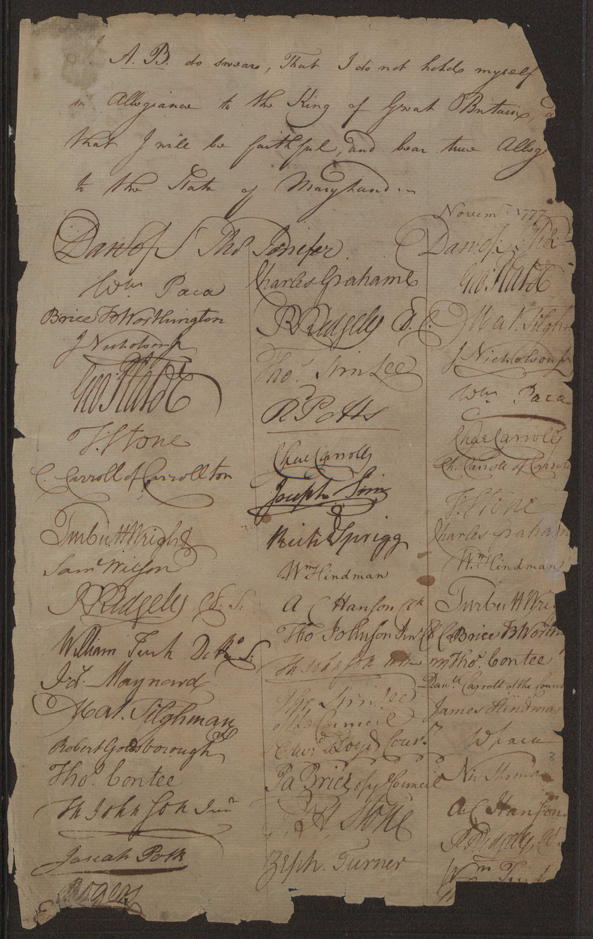 A. B. do swear, That I do not hold myself
in Allegiance to the King of Great Britain,
that I will be faithful, and bear true Alleg
to the State of Maryland.
Novem 1777
Dan of St Thos Jenifer
Wm Paca
Brice B Worthington
J Nicholson Jr
Geo Plater
T. Stone
C. Carroll of Carrollton
Turbutt Wright
Saml Wilson
R Ridgely
William Turk
Maynard
Mat. Tilghman
Robert Goldsborough
Thos. Contee
Th Johnson Junr
Josiah Polk
Rogers
Charles Grahame
R Ridgely
Thos Sim Lee
R Potts
Chas Carroll
Joseph Sim
Richd Sprigg
Wm Hindman
A C Hanson
Thos Johnson
Th Johnson
Thos Sim Lee
Council
Edwd Lloyd
Council
Stone
Zeph. Turner
Dan of
Geo Plater
Mat. Tilghm
J Nicholson Jr
Wm Paca
Chas Carroll
Ch. Carroll of Carroll
T. Stone
Charles Graham
Wm Hindman
Turbutt Wri
Brice B Worth
Thos. Contee
Danl. Carroll of the Coun
James Hindman
W paca
A C Hanson
R Ridgely
Wm Turk